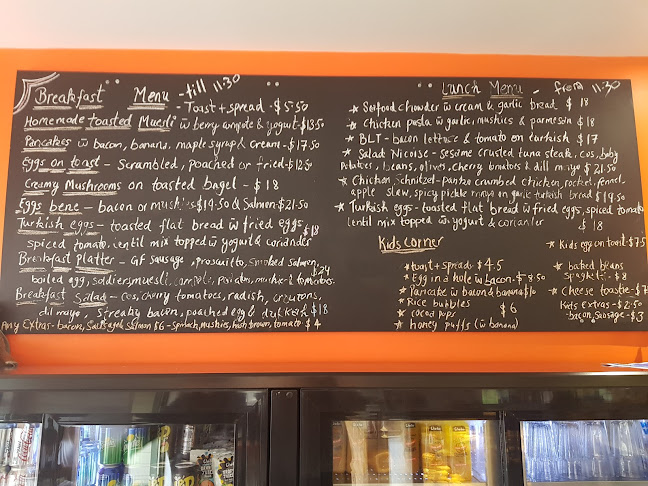 Breakfast Menu - till 11:30
- Toast + spread - $5.50
Homemade toasted Muesli w berry compote & yogurt - $13.50
Pancakes w bacon, banana, maple syrup & cream - $17.50
Eggs on toast - Scrambled, poached or fried - $12.50
Creamy Mushrooms on toasted bagel - $18
Eggs bene - bacon or mushies $19.50 & Salmon $21.50
Turkish eggs - toasted flat bread w fried eggs, $18
spiced tomato, lentil mix topped w yogurt & coriander
Breakfast Platter - GF sausage, prosciutto, smoked salmon, $24
boiled egg, soldiers, muesli, compote, potatoes, mushies & tomatoes
Breakfast Salad - cos, cherry tomatoes, radish, croutons,
dil mayo, streaky bacon, poached egg & $18
Any Extras - bacon, Sausage & Salmon $6 - Spinach, mushies, hash brown, tomato $4
Lunch Menu - from 11:30
★ Seafood chowder w cream & garlic bread $18
★ Chicken pasta w garlic, mushies & parmesan $18
★ BLT - bacon lettuce & tomato on turkish $17
★ Salad Nicoise - sesame crusted tuna steak, cos, baby
potatoes, beans, olives, cherry tomatoes & dill mayo $21.50
★ Chicken Schnitzel - panko crumbed chicken, rocket, fennel,
apple slaw, spicy pickle mayo on garlic turkish bread $19.50
★ Turkish eggs - toasted flat bread w fried eggs, spiced tomato
lentil mix topped w yogurt & coriander $18
Kids corner
★ toast + spreads $4.5
★ Egg in a hole w bacon - $8.50
★ Pancake w bacon & banana $10
★ Rice bubbles
★ cocoa pops $6
★ honey puffs (w banana)
★ Kids egg on toast - $7.5
★ baked beans
Spaghetti - $8
★ Cheese toastie - $7
Kids Extras - $2.50
- bacon, Sausage - $3